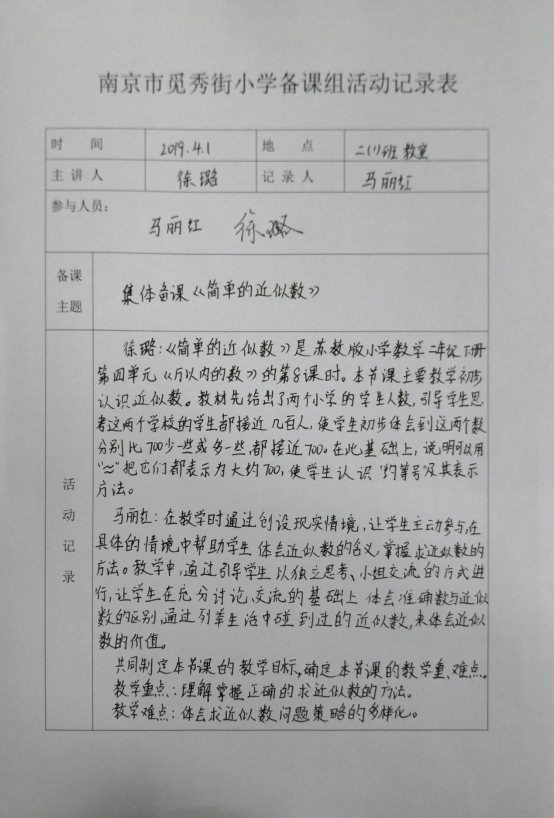 南京市觅秀街小学备课组活动记录表
时 间 2019.4.1 地 点 二(1)班 教室
主 讲 人 徐璐 记 录 人 马丽红
参与人员：
马丽红 徐璐
备课
主题
集体备课《简单的近似数》
活动记录
徐璐：《简单的近似数》是苏教版小学数学二年级下册
第四单元《万以内的数》的第8课时。本节课主要教学初步
认识近似数。教材先给出了两个小学的学生人数，引导学生思
考这两个学校的学生都接近几百人，使学生初步体会到这两个数
分别比700少一些或多一些，都接近700。在此基础上，说明可以用
“≈”把它们都表示为大约700，使学生认识“约等号”及其表示
方法。
马丽红：在教学时通过创设现实情境，让学生主动参与，在
具体的情境中帮助学生体会近似数的含义，掌握求近似数的
方法。教学中，通过引导学生以独立思考、小组交流的方式进
行，让学生在充分讨论、交流的基础上体会准确数与近似
数的区别，通过列举生活中碰到过的近似数，来体会近似
数的价值。
共同制定本节课的教学目标，确定本节课的教学重、难点。
教学重点：理解掌握正确的求近似数的方法。
教学难点：体会求近似数问题策略的多样化。